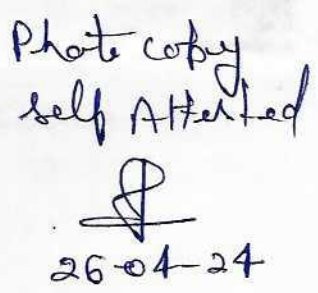 Photo copy
self Attested
26-04-24